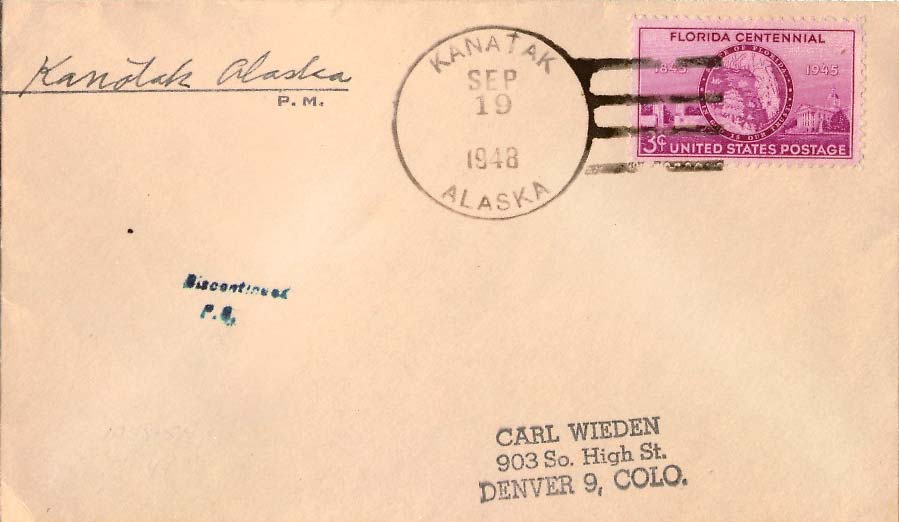 Kanatak Alaska
P. M.
KANATAK
SEP
19
1948
ALASKA
FLORIDA CENTENNIAL
1845 1945
STATE OF FLORIDA
IN GOD IS OUR TRUST
3¢ UNITED STATES POSTAGE
Discontinued
P.O.
CARL WIEDEN
903 So. High St.
DENVER 9, COLO.